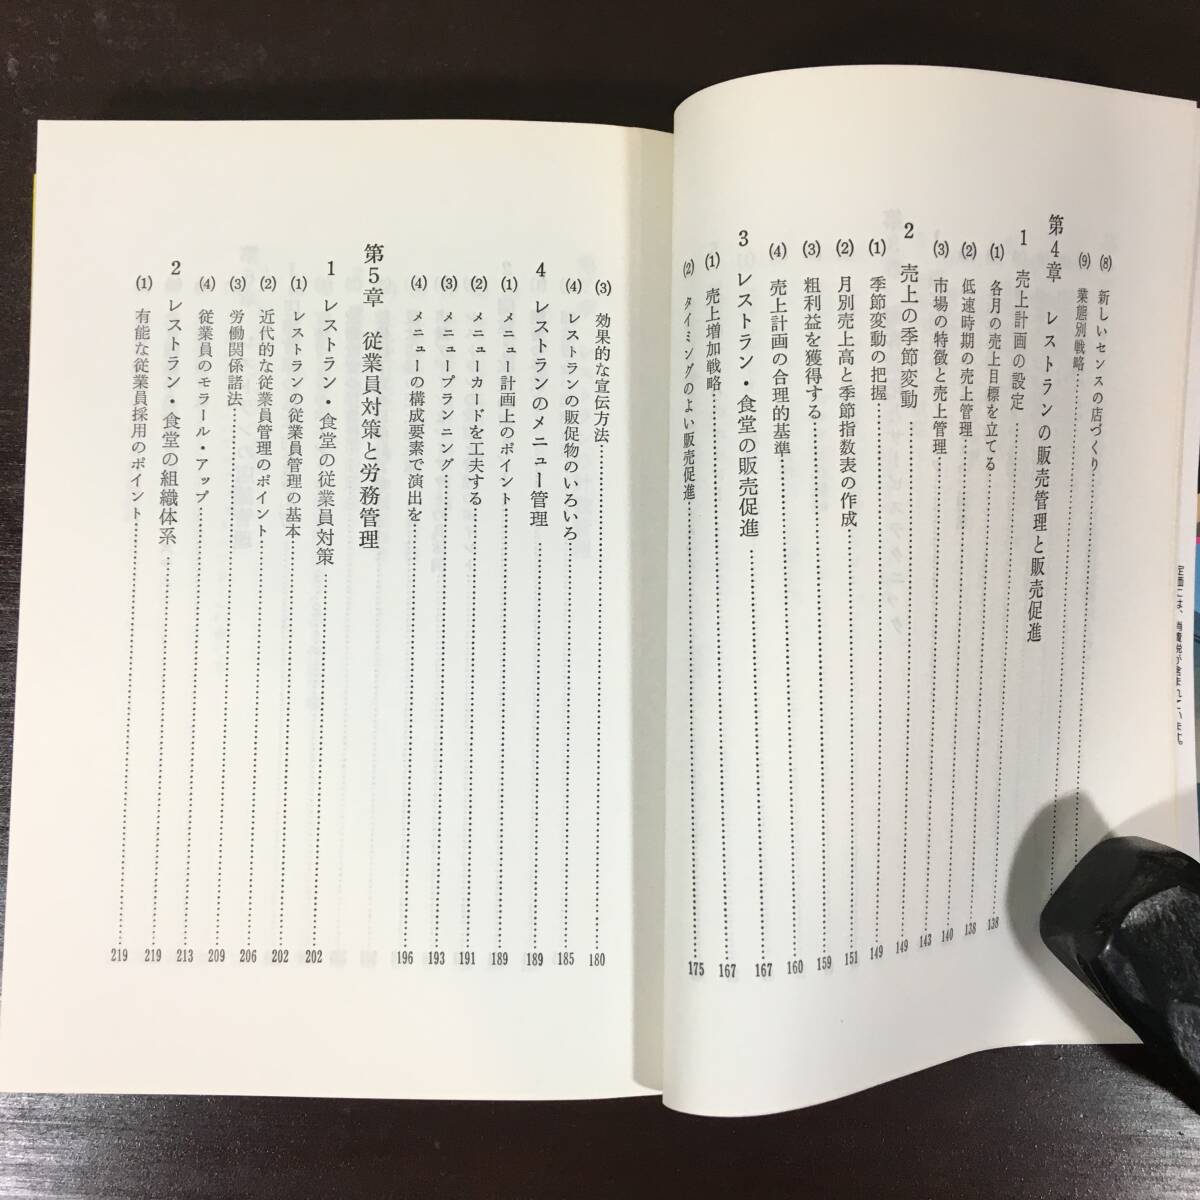 (8) 新しいセンスの店づくり
(9) 業態別戦略
第4章 レストランの販売管理と販売促進
1 売上計画の設定 138
(1) 各月の売上目標を立てる 138
(2) 低速時期の売上管理 140
(3) 市場の特徴と売上管理 143
2 売上の季節変動 149
(1) 季節変動の把握 149
(2) 月別売上高と季節指数表の作成 151
(3) 粗利益を獲得する 159
(4) 売上計画の合理的基準 160
3 レストラン・食堂の販売促進 167
(1) 売上増加戦略 167
(2) タイミングのよい販売促進 175
(3) 効果的な宣伝方法 180
(4) レストランの販促物のいろいろ 185
4 レストランのメニュー管理 189
(1) メニュー計画上のポイント 189
(2) メニューカードを工夫する 191
(3) メニュープランニング 193
(4) メニューの構成要素で演出を 196
第5章 従業員対策と労務管理
1 レストラン・食堂の従業員対策 202
(1) レストランの従業員管理の基本 202
(2) 近代的な従業員管理のポイント 206
(3) 労働関係諸法 209
(4) 従業員のモラール・アップ 213
2 レストラン・食堂の組織体系 219
(1) 有能な従業員採用のポイント 219
定価には、消費税が含まれています。